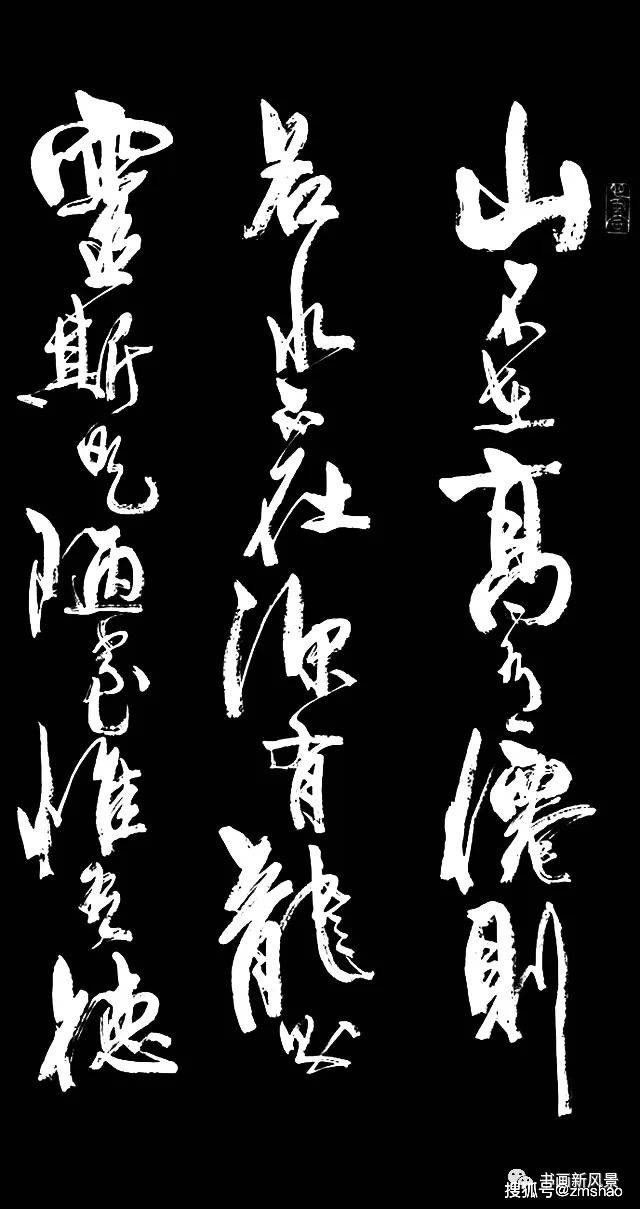 山不在高有僊則
名水不在深有龍則
靈斯是陋室惟吾德
书画新风景
搜狐号@zmshao